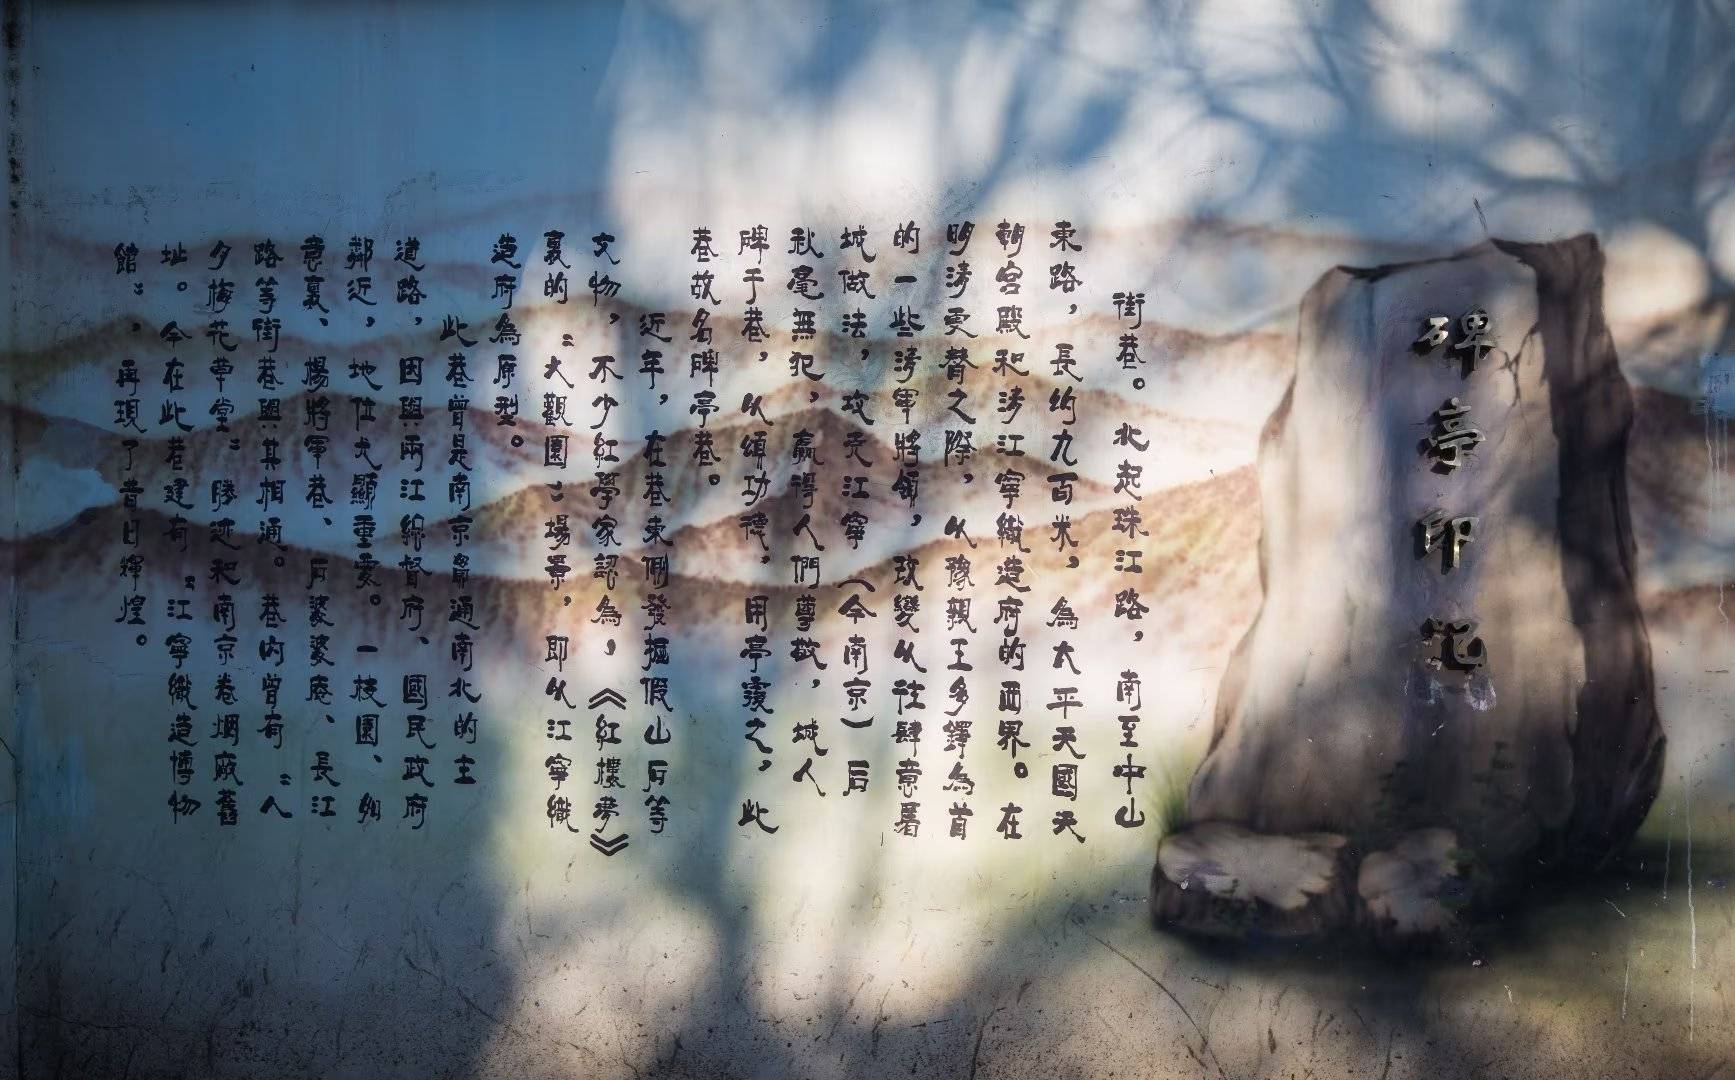 碑亭印記
街巷。北起珠江路，南至中山
東路，長約九百米，為太平天國天
朝宮殿和清江寧織造府的西界。在
明清更替之際，以豫親王多鐸為首
的一些清軍將領，改變以往肆意屠
城做法，攻克江寧（今南京）后
秋毫無犯，贏得人們尊敬，城人
碑于巷，以頌功德，用亭覆之，此
巷故名碑亭巷。
近年，在巷東側發掘假山石等
文物，不少紅學家認為，《紅樓夢》
裏的“大觀園”場景，即以江寧織
造府為原型。
此巷曾是南京最通南北的主
道路，因與兩江總督府、國民政府
鄰近，地位尤顯重要。一枝園、如
意裏、楊將軍巷、石婆婆庵、長江
路等街巷與其相通。巷内曾有“人
夕梅花草堂”勝迹和南京卷烟廠舊
址。今在此巷建有“江寧織造博物
館”，再現了昔日輝煌。